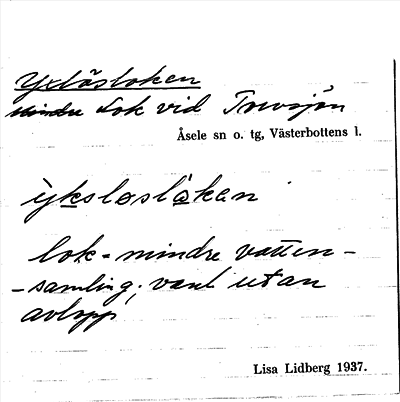 Yxlösloken
~~mindre~~ Lok vid Torvsjön
Åsele sn o. tg, Västerbottens l.
ỳksløslǻkan
lok = mindre vatten-
-samling, vanl utan
avlopp
Lisa Lidberg 1937.